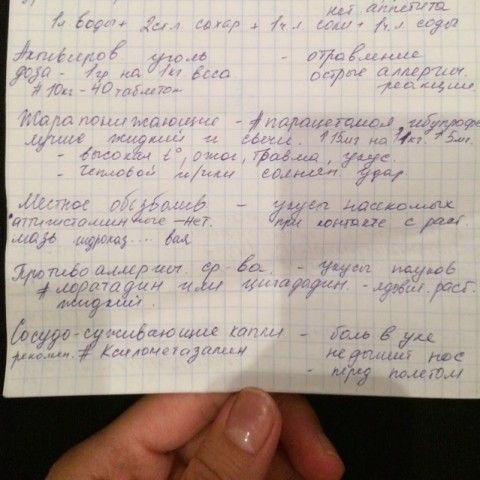 нет аппетита
1л воды + 2ст.л сахар + 1ч.л соли + 1ч.л соды
Активиров уголь - отравление
доза - 1гр на 1кг веса острые аллергич.
#10кг - 40 таблеток реакции.
Жаропонижающие - #парацетомол, ибупрофе
лучше жидкий и свечи. 15мг на 1кг. 5мг.
- высокая t°, ожог, травма, укус.
- тепловой и/или солнеч удар
Местное обезболив - укусы насекомых
антигистаминные - нет. при контакте с раст.
мазь гидроказ...
Противоаллергич. ср-ва. - укусы пауков
# лоратадин или - ядовит. раст.
жидкий.
Сосудо-суживающие капли - боль в ухе
рекомен. # Ксилометазалин не дышит нос
- перед полетом